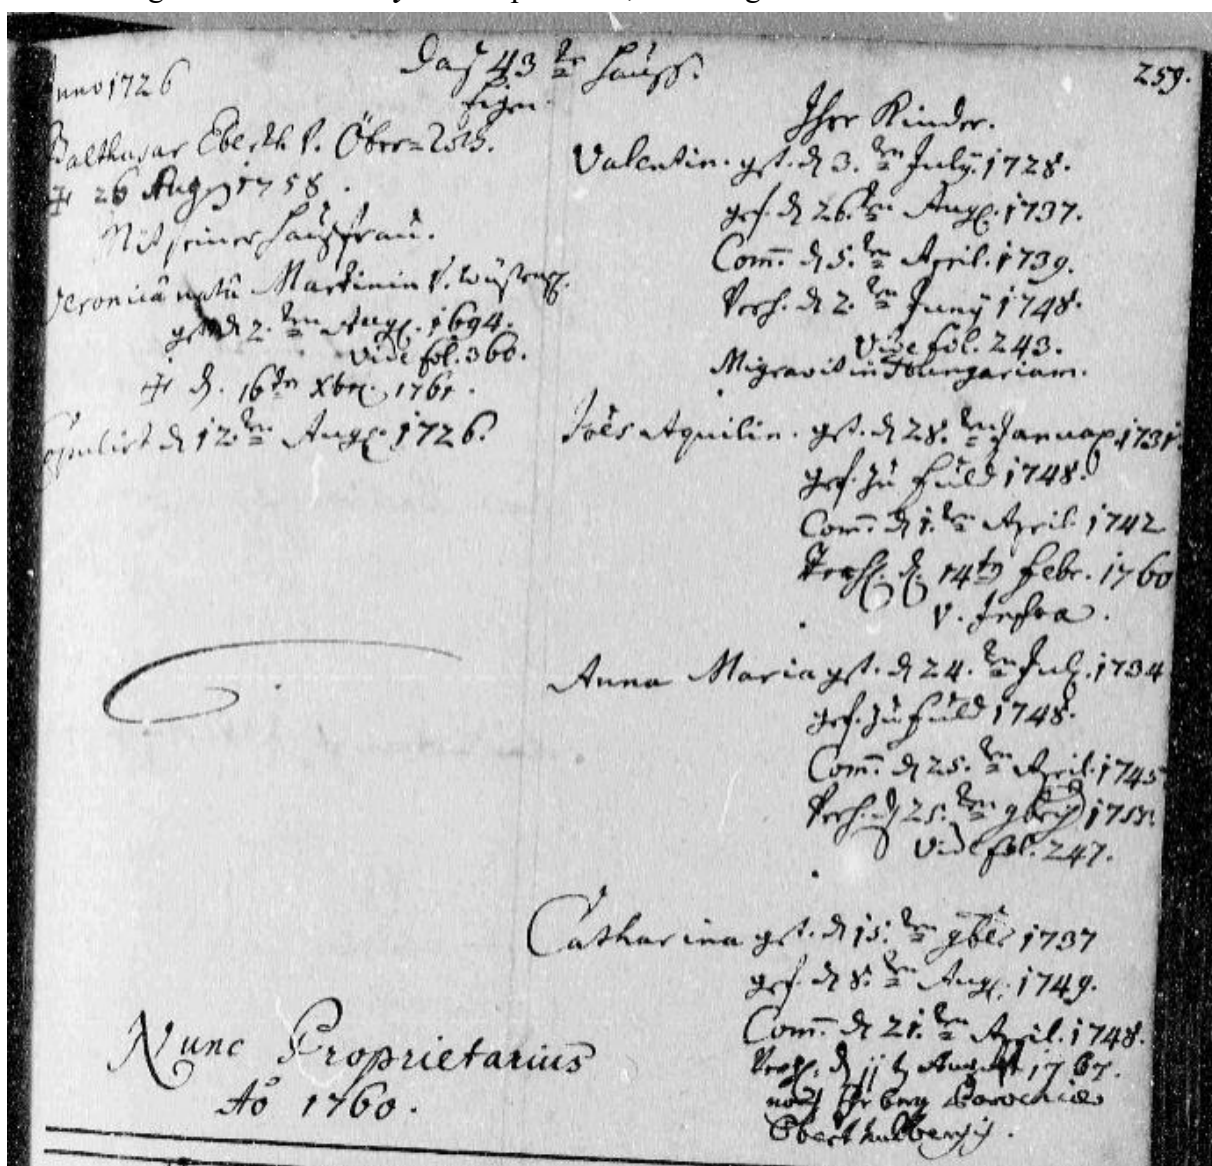 Das 43 te Hauß.
259.
Anno 1726
Eigen.
Balthasar Eberth v.
† 26 Aug 1758.
Mit seiner Haußfrau.
Veronica nata Martinin v.
gst. d 2. ten Aug. 1694.
vide fol. 360.
† d. 16 ten Xbr. 1761.
Copulirt d 12. ten Aug. 1726.
Ihre Kinder.
Valentin. gst. d 3. ten July. 1728.
gef. d 26. ten Aug. 1737.
Com. d 5. ten April. 1739.
Verh. d 2. ten Juny 1748.
Vide fol. 243.
Migravit in Hungariam.
Joes Aquilin. gst. d 28. ten Januar. 1731.
gef. zu Fuld 1748.
Com. d 1. ten April. 1742
Verh. d. 14 tn Febr. 1760
v. Infra.
Anna Maria gst. d 24. ten Jul. 1734
gef. zu Fuld 1748.
Com. d 25. ten April. 1745
Verh. d 25. ten 9bris
Vide fol. 247.
Catharina gst. d 15. ten 9bris 1737
gef. d 8. ten Aug. 1749.
Com. d 21. ten April. 1748.
Verh. d 11 t August 1767.
nach Parochiae
Nunc Proprietarius
Ao 1760.